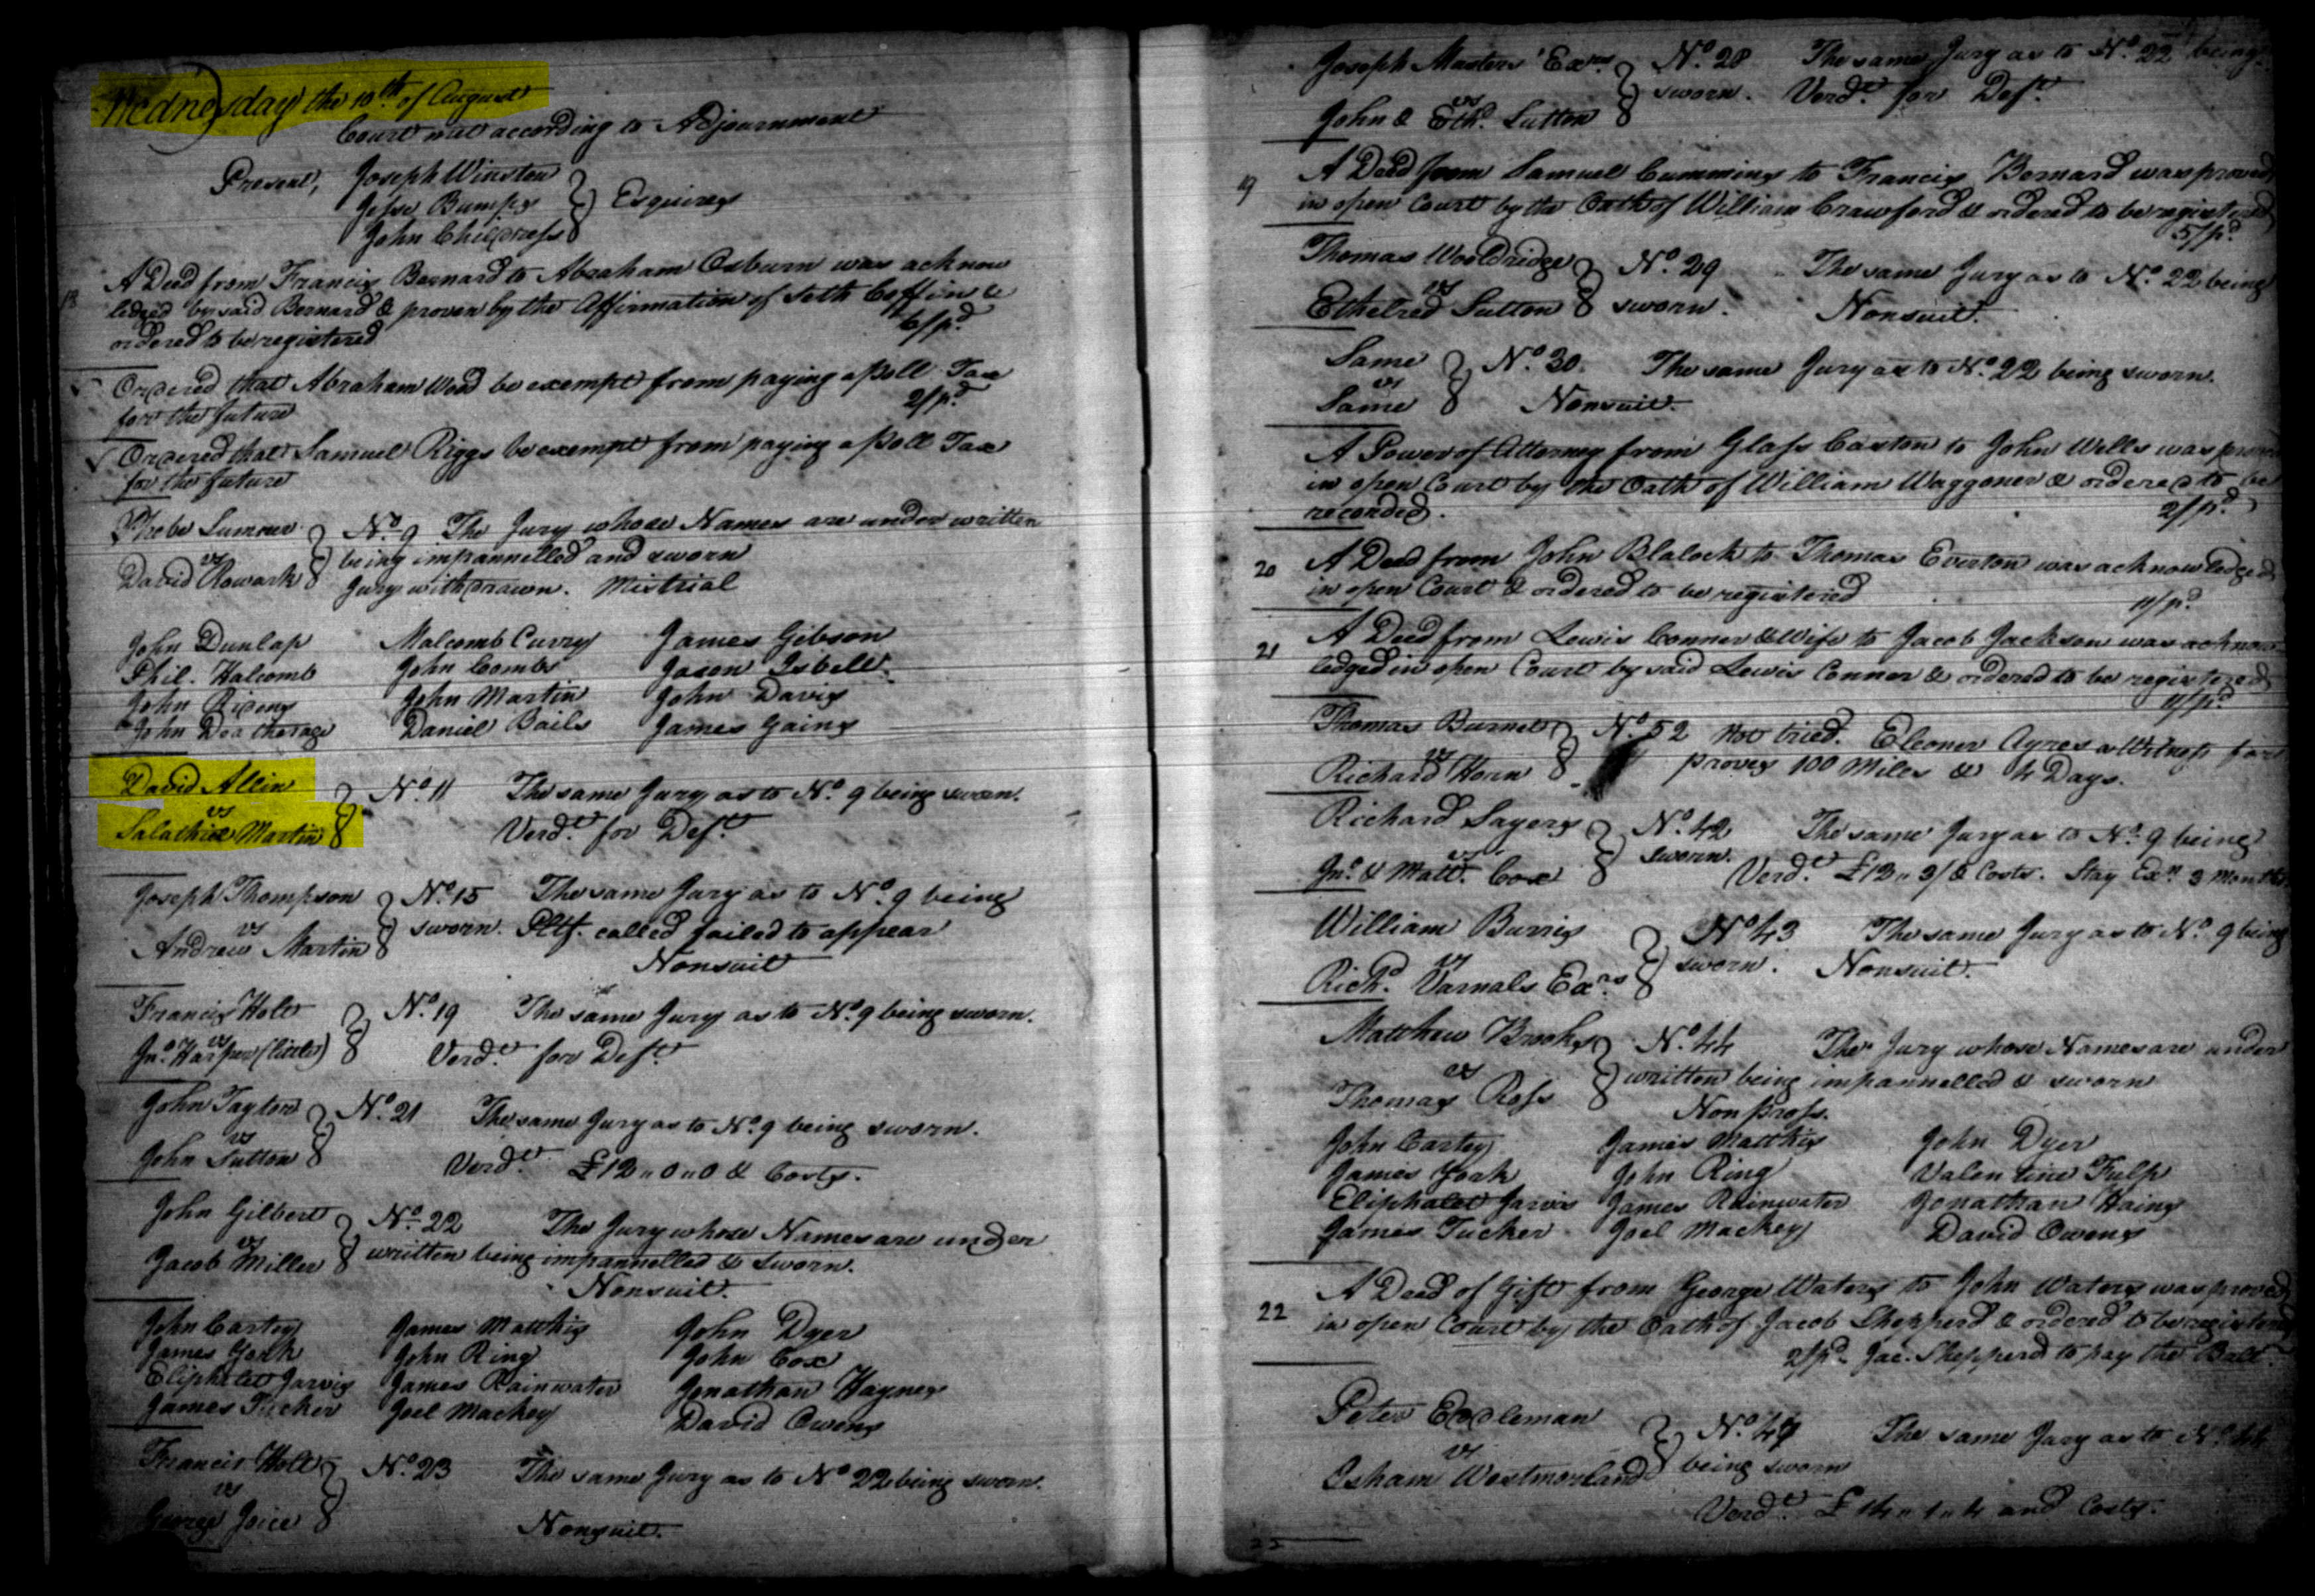 Wednesday the 10th of August
Court met according to Adjournment
Present, Joseph Winston
Jesse Bumps } Esquires
John Childress
18 A Deed from Francis Bernard to Abraham Osburn was acknow
ledged by said Bernard & proven by the Affirmation of Seth Coffin &
ordered to be registered 6/pd.
Ordered that Abraham Wood be exempt from paying a Poll Tax
for the future 2/pd.
Ordered that Samuel Riggs be exempt from paying a Poll Tax
for the future
Phebe Sumner } No. 9 The Jury whose Names are under written
vs being impannelled and sworn
David Rowark Jury withdrawn. Mistrial
John Dunlap Malcomb Curry James Gibson
Phil. Halcomb John Combs Jason Isbell
John Ridens John Martin John Davis
John Deatherage Daniel Bails James Gains
David Allin } No. 11 The same Jury as to No. 9 being sworn.
vs
Salathiel Martin Verdt. for Deft.
Joseph Thompson } No. 15 The same Jury as to No. 9 being
vs sworn. Pltf. called failed to appear
Andrew Martin Nonsuit
Francis Holt } No. 19 The same Jury as to No. 9 being sworn.
vs
Jno. Harper (little) Verdt. for Deft.
John Taylor } No. 21 The same Jury as to No. 9 being sworn.
vs
John Sutton Verdt. £12 " 0 " 0 & Costs.
John Gilbert } No. 22 The Jury whose Names are under
vs written being impannelled & sworn.
Jacob Miller Nonsuit.
John Cartey James Matthis John Dyer
James York John Ring John Cox
Eliphalet Jarvis James Rainwater Jonathan Haynes
James Tucker Joel Mackey David Owens
Francis Holt } No. 23 The same Jury as to No. 22 being sworn.
vs
George Joice Nonsuit.
Joseph Masters' Exrs. } No. 28 The same Jury as to No. 22 being
vs sworn. Verdt. for Deft.
John & Ethd. Sutton
19 A Deed from Samuel Cummins to Francis Bernard was proved
in open Court by the Oath of William Crawford & ordered to be registered
5/pd.
Thomas Wooldridge } No. 29 The same Jury as to No. 22 being
vs
Ethelred Sutton sworn. Nonsuit.
Same } No. 30. The same Jury as to No. 22 being sworn.
vs
Same Nonsuit.
A Power of Attorney from Glass Caston to John Wells was proved
in open Court by the Oath of William Waggoner & ordered to be
recorded. 2/pd.
20 A Deed from John Blalock to Thomas Everton was acknowledged
in open Court & ordered to be registered 11/pd.
21 A Deed from Lewis Conner & Wife to Jacob Jackson was acknow
ledged in open Court by said Lewis Conner & ordered to be registered
11/pd.
Thomas Burnet } No. 52 Not tried. Eleoner Ayres a Witness for
vs
Richard Horn proves 100 Miles & 4 Days.
Richard Sayers } No. 42 The same Jury as to No. 9 being
vs sworn.
Jno. & Matt. Cox Verdt. £12 " 3/ & Costs. Stay Exn. 3 Months
William Burris } No. 43 The same Jury as to No. 9 being
vs sworn. Nonsuit.
Richd. Varnals Exrs.
Matthew Brooks } No. 44 The Jury whose Names are under
vs written being impannelled & sworn
Thomas Ross Non pross.
John Cartey James Matthis John Dyer
James York John Ring Valentine Fulp
Eliphalet Jarvis James Rainwater Jonathan Hains
James Tucker Joel Mackey David Owens
22 A Deed of Gift from George Waters to John Waters was proved
in open Court by the Oath of Jacob Shepperd & ordered to be registered
2/pd. Jac. Shepperd to pay the Balc.
Peter Eddleman } The same Jury as to No. 44
vs being sworn
Isham Westmorland
Verdt. £14 " 1 " 4 and Costs.